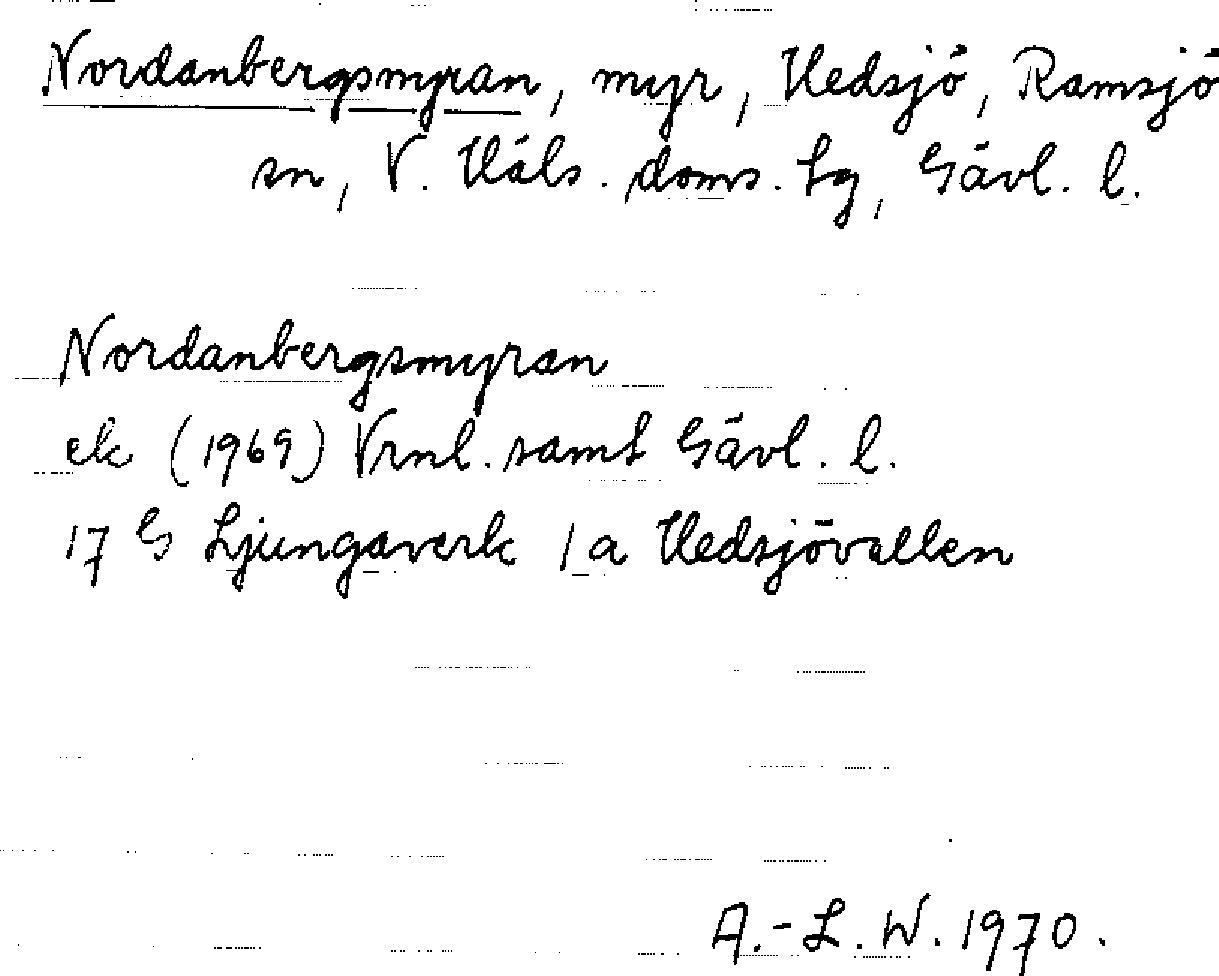 Nordanbergsmyran, myr, Hedsjö, Ramsjö
sn, V. Häls. doms. tg, Gävl. l.
Nordanbergsmyran
ek (1969) Vrnl. samt Gävl. l.
17 G Ljungaverk 1 a Hedsjövallen
A.-L. W. 1970.